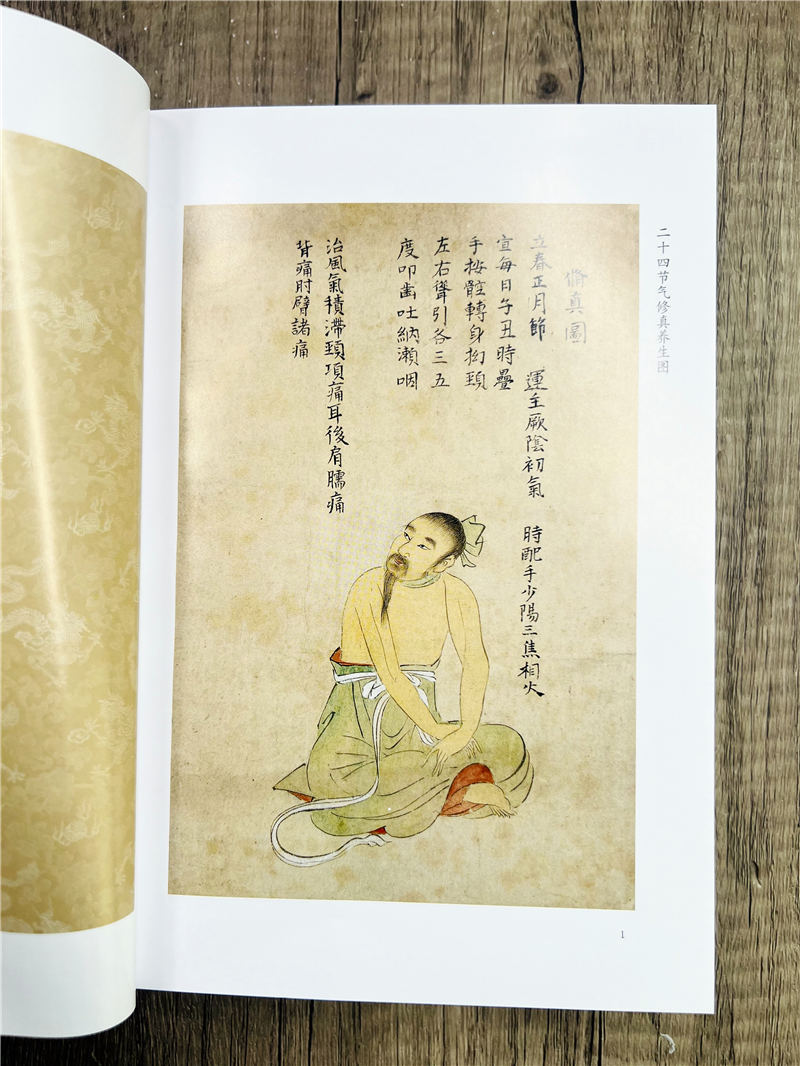 二十四节气修真养生图
脩真圖
立春正月節 運主厥陰初氣 時配手少陽三焦相火
宜每日子丑時疊
手按髀轉身拗頸
左右聳引各三五
度叩齒吐納漱咽
治風氣積滯頸項痛耳後肩臑痛
背痛肘臂諸痛
1